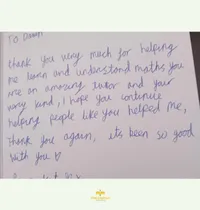 To
thank you very much for helping
me learn and understand maths you
are an amazing tutor and your
very kind, I hope you continue
helping people like you helped me,
Thank you again, its been so good
With you